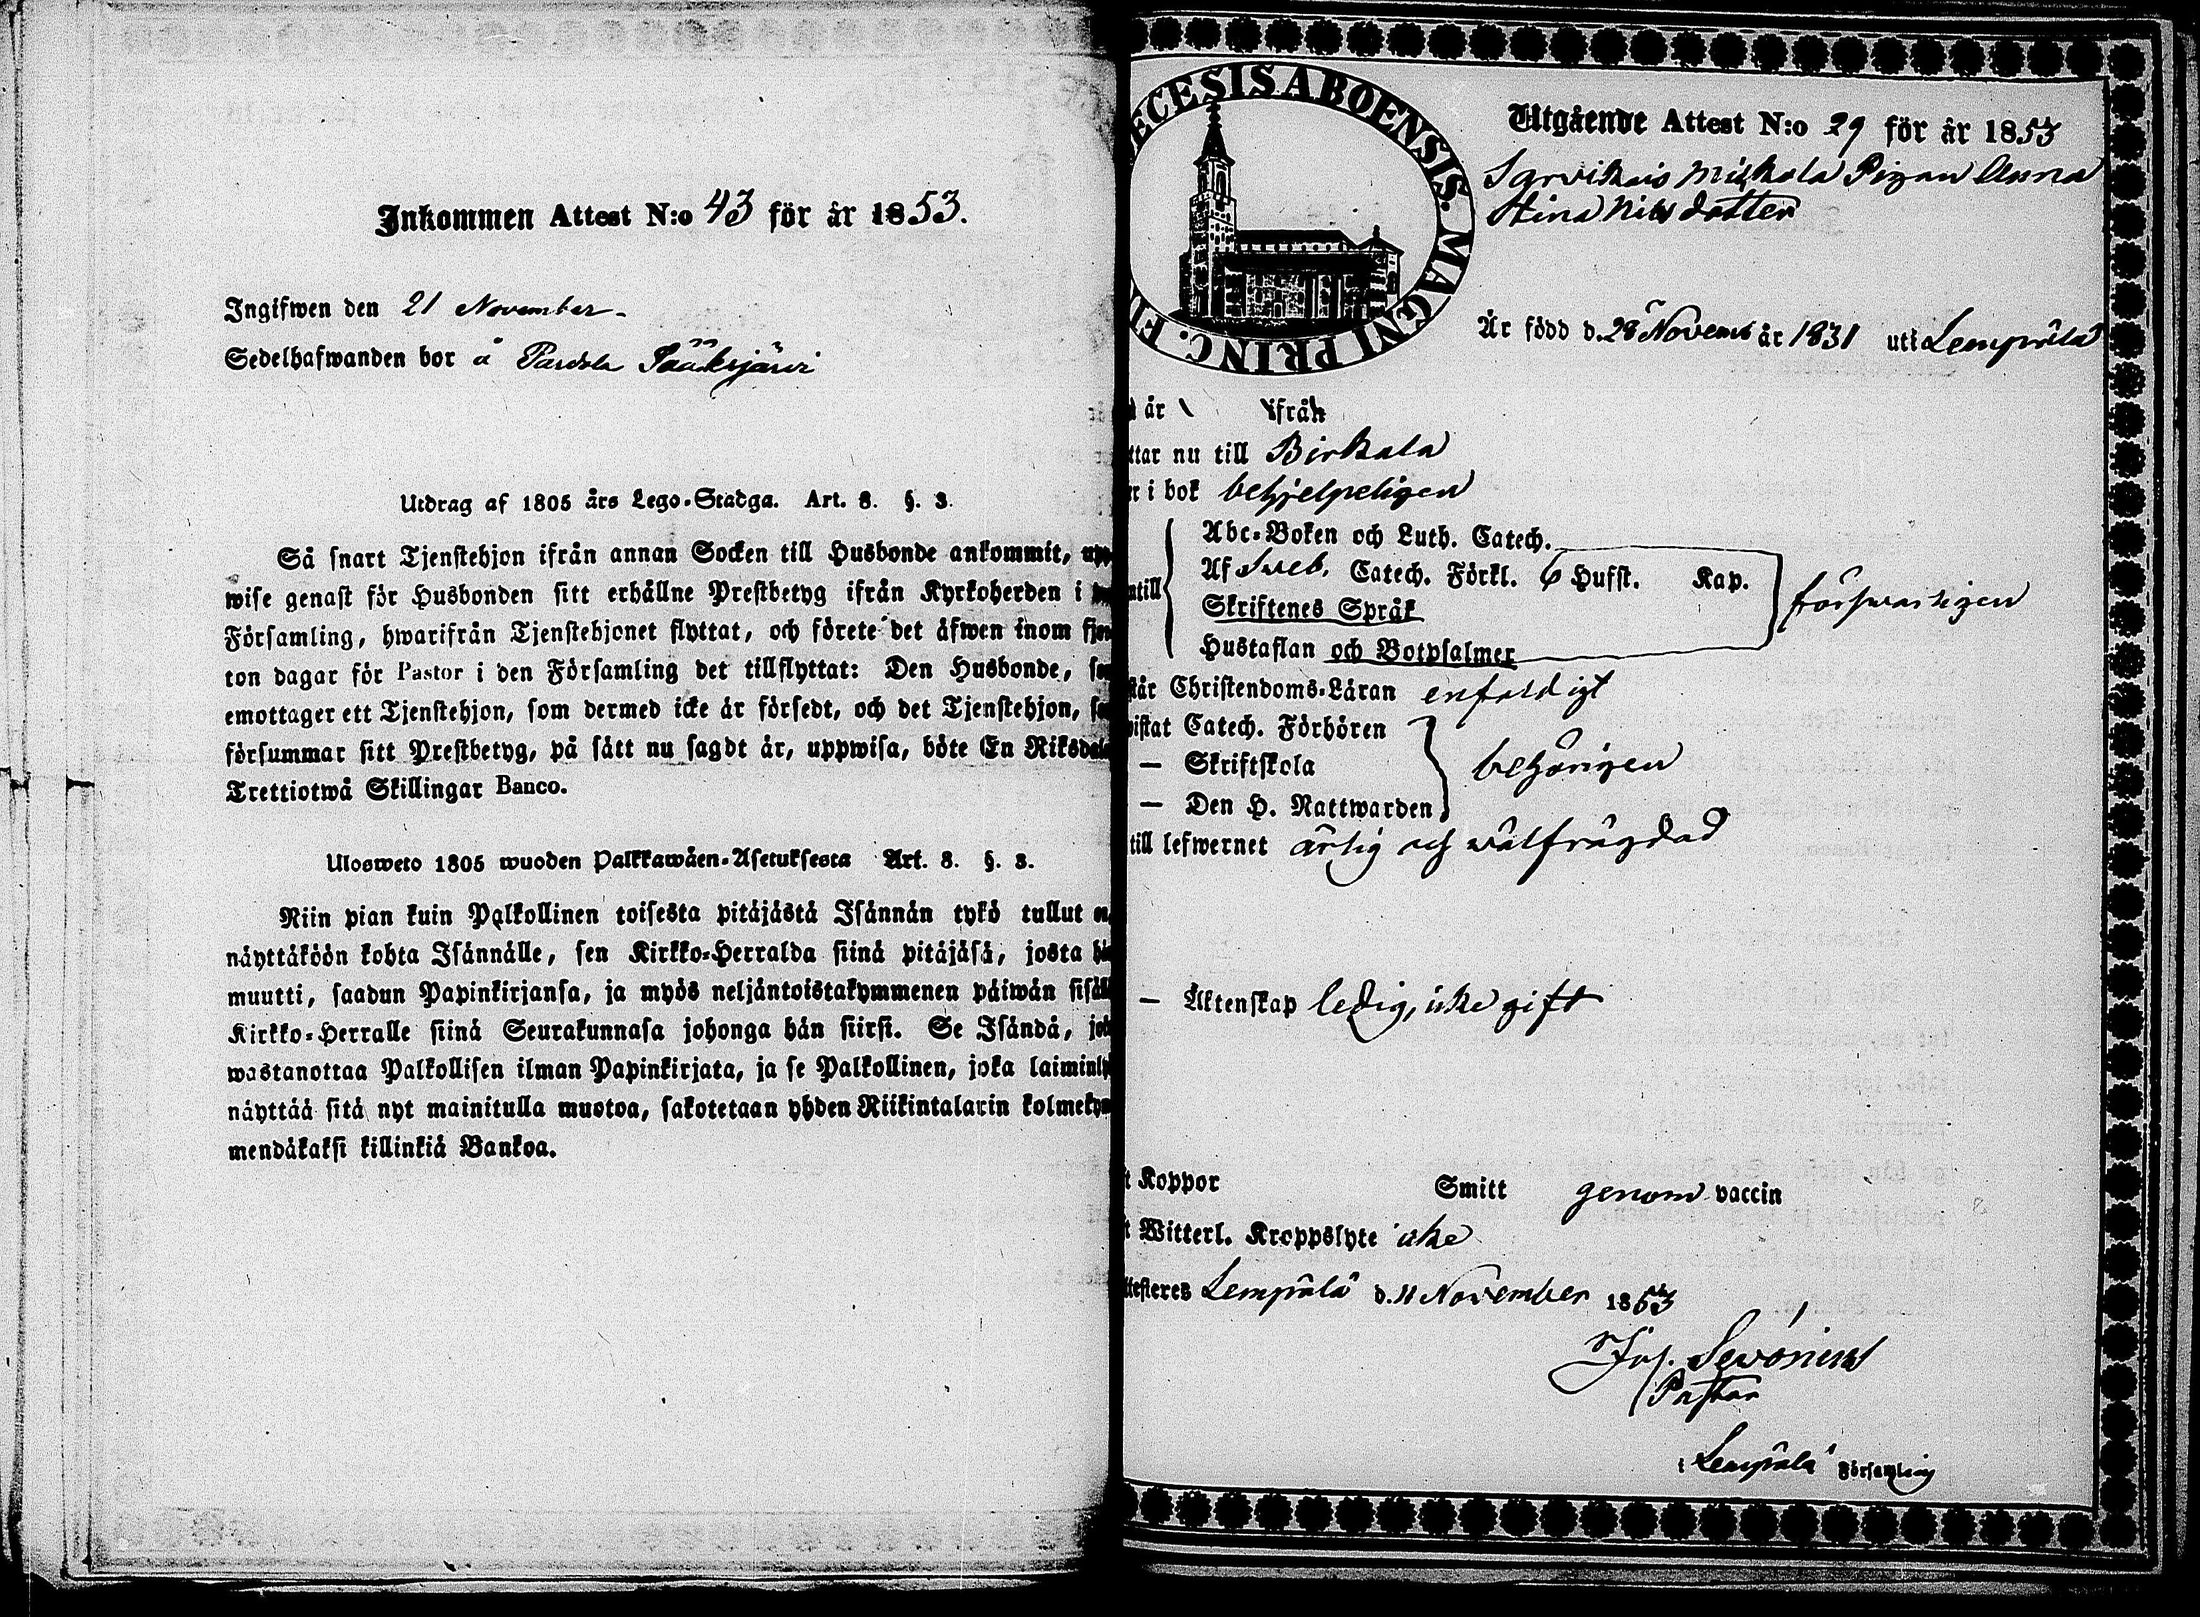 Inkommen Attest N:o 43 för år 1853.
Ingifwen den 21 November.
Sedelhafwanden bor å Pardola Sääksjärvi
Utdrag af 1805 års Lego-Stadga. Art. 8. §. 3.
Så snart Tjenstehjon ifrån annan Socken till Husbonde ankommit, upp
wise genast för Husbonden sitt erhållne Prestbetyg ifrån Kyrkoherden i
Församling, hwarifrån Tjenstehjonet flyttat, och förete det äfwen inom fjor
ton dagar för Pastor i den Församling det tillflyttat: Den Husbonde, so
emottager ett Tjenstehjon, som dermed icke är försedt, och det Tjenstehjon, so
försummar sitt Prestbetyg, på sätt nu sagdt är, uppwisa, böte En Riksdale
Trettiotwå Skillingar Banco.
Ulosweto 1805 wuoden Palkkawäen-Asetuksesta Art. 8. §. 3.
Niin pian kuin Palkollinen toisesta pitäjästä Isännän tykö tullut on,
näyttäköön kohta Isännälle, sen Kirkko-Herralda siinä pitäjäsä, josta hä
muutti, saadun Papinkirjansa, ja myös neljäntoistakymmenen päiwän sisäll
Kirkko-Herralle siinä Seurakunnasa johonga hän siirsi. Se Isändä, jok
wastanottaa Palkollisen ilman Papinkirjata, ja se Palkollinen, joka laiminly
näyttää sitä nyt mainitulla muotoa, sakotetaan yhden Riikintalarin kolmekym
mendäkaksi killinkiä Bankoa.
ECESIS ABOENSIS. MAGNI PRINC. FI
Utgående Attest N:o 29 för år 1853
Sarvikais Mickola Pigan Anna
Stina Nilsdotter
Är född d. 28 Novemb år 1831 uti Lempälä
år ifrån
ttar nu till Birkala
r i bok behjelpeligen
Abc-Boken och Luth. Catech.
ntill Af Sveb. Catech. Förkl. 6 Hufst. Kap. försvarligen
Skriftenes Språk
Hustaflan och Botpsalmer
står Christendoms-Läran enfaldigt
wistat Catech. Förhören
— Skriftskola behörigen
— Den H. Nattwarden
till lefwernet ärlig och wälfrägdad
— Äktenskap ledig, icke gift
t Koppor Smitt genom vaccin
t Witterl. Kroppslyte icke
ttesteres Lempälä d. 11 November 1853
Jos. Sevonius
Pastor
i Lempälä Församling